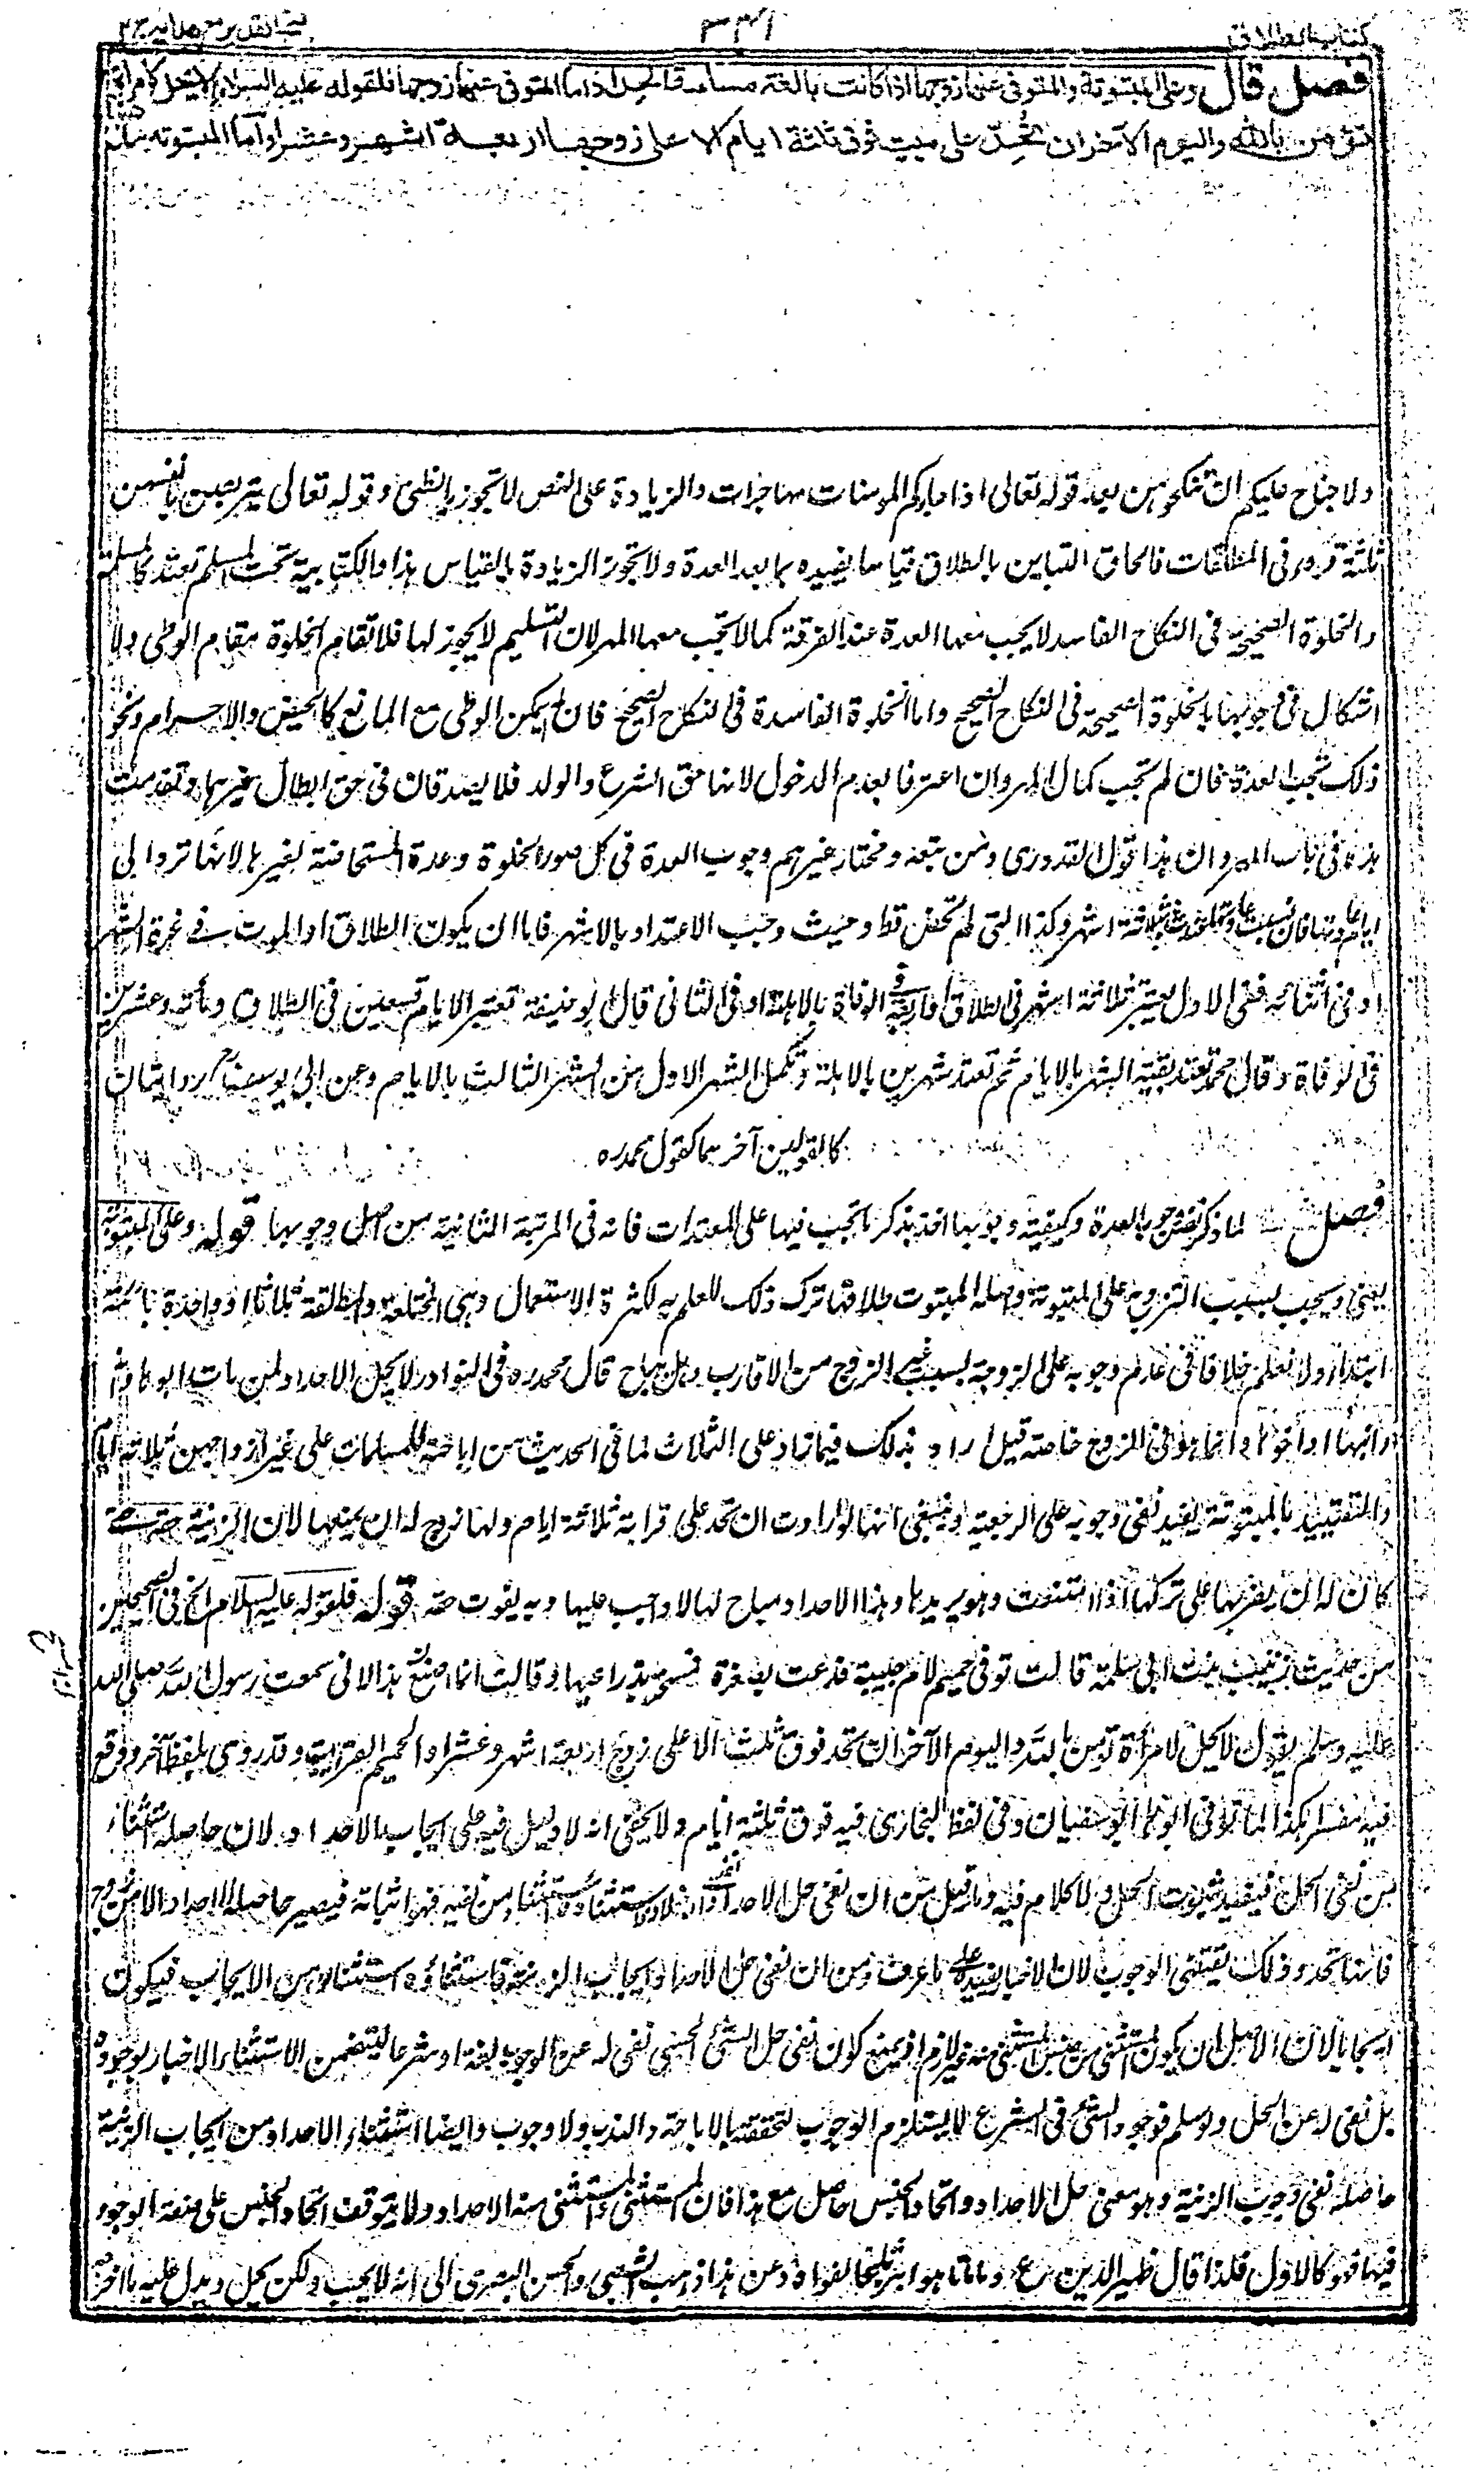 كتاب الطلاق
فتح القدير مع هداية ج ٢
فصل قال وعلى المبتوتة والمتوفى عنها زوجها اذا كانت بالغة مسلمة الحداد اما المتوفى عنها زوجها فلقوله عليه السلام لا يحل لامرأة
تؤمن بالله واليوم الآخر ان تحد على ميت فوق ثلثة ايام الا على زوجها اربعة اشهر وعشرا واما المبتوتة
ولا جناح عليكم ان تنكحوهن بعد قوله تعالى اذا جاءكم المومنات مهاجرات والزيادة على النص لا تجوز بالظني وقوله تعالى يتربصن بانفسهن
ثلثة قروء في المطلقات فالحاق التباين بالطلاق قياسا يفيده بما بعد العدة ولا تجوز الزيادة بالقياس هذا والكتابية تحت المسلم تعتد كالمسلمة
والخلوة الصحيحة في النكاح الفاسد لا يجب معها العدة عند الفرقة كما لا تجب معها المهر لان التسليم لا يجوز لها فلا تقام الخلوة مقام الوطى ولا
اشكال في وجوبها بالخلوة الصحيحة في النكاح الصحيح واما الخلوة الفاسدة في النكاح الصحيح فان امكن الوطى مع المانع كالحيض والاحرام ونحو
ذلك تجب العدة فان لم تجب كمال المهر وان اعترفا بعدم الدخول لانها حق الشرع والولد فلا يصدقان في حق ابطال غيرهما وتقدمت
هذه في باب المهر وان هذا قول القدوري ومن تبعه ومختار غيرهم وجوب العدة في كل صور الخلوة وعدة المستحاضة لغيرها لانها ترد الى
ايام عادتها فان نسيت عادتها بثلاثة اشهر وكذا التي لم تحض قط وحيث وجب الاعتداد بالاشهر فاما ان يكون الطلاق او الموت في غرة الشهر
او في اثنائه ففي الاول يعتبر ثلاثة اشهر في الطلاق واربعة في الوفاة بالاهلة وفي الثاني قال ابو حنيفة تعتبر الايام تسعين في الطلاق ومأته وعشرين
في الوفاة وقال محمد تعتد بقية الشهر بالايام ثم تعتد شهرين بالاهلة وتكمل الشهر الاول من الشهر الثالث بالايام وعن ابي يوسف روايتان
كالقولين آخرهما كقول محمد ره
فصل لما ذكر نفس وجوب العدة وكيفية وجوبها اخذ يذكر ما تجب فيها على المعتدات فانه في المرتبة الثانية من اصل وجوبها قوله وعلى المبتوتة
يعني ويجب بسبب التزوج على المبتوتة واصله المبتوت طلاقها ترك ذلك للعلم به لكثرة الاستعمال وهي المختلعة والمطلقة ثلاثا او واحدة بائنة
ابتداء ولا نعلم خلافا في عدم وجوبه على الزوجة بسبب غير الزوج من الاقارب وهل يباح قال محمد ره في النوادر لا يحل الاحداد لمن مات ابوها او
ابنها او اخوها وانما هو في الزوج خاصة قيل اراد بذلك فيما زاد على الثلاث لما في الحديث من اباحته للمسلمات على غير ازواجهن ثلاثة ايام
والتقييد بالمبتوتة يفيد نفي وجوبه على الرجعية وينبغي انها لو ارادت ان تحد على قرابة ثلاثة ايام ولها زوج له ان يمنعها لان الزينة حقه حتى
كان له ان يضربها على تركها اذا امتنعت وهو يريدها وهذا الاحداد مباح لها لا واجب عليها وبه يفوت حقه قوله فلقوله عليه السلام الخ في الصحيحين
من حديث زينب بنت ابي سلمة قالت توفي حميم لام حبيبة فدعت بصفرة فمسحته بذراعيها وقالت انما اصنع هذا لاني سمعت رسول الله صلى الله
عليه وسلم يقول لا يحل لامرأة تؤمن بالله واليوم الآخر ان تحد فوق ثلث الا على زوج اربعة اشهر وعشرا والحميم القرابة وقد روى بلفظ آخر ووقع
فيه مفسرا هكذا لما توفي ابوها ابو سفيان وفي لفظ البخاري فيه فوق ثلثة ايام ولا يخفى انه لا دليل فيه على ايجاب الاحداد لان حاصله استثناء
من نفي الحل فيفيد ثبوت الحل ولا كلام فيه وما قيل من ان نفي حل الاحداد نفي الاحداد فاستثناؤه استثناء من نفيه فهو اثباته فيصير حاصله لا احداد الا من زوج
فانها تحد وذلك يقتضي الوجوب لان الاخبار يفيده على ما عرف ومن ان نفي حل الاحداد ايجاب الزينة فاستثناؤه استثناء من الايجاب فيكون
ايجابا لان الاصل ان يكون المستثنى من جنس المستثنى منه غير لازم اذ يمنع كون نفي حل الشئ الحسي نفي له عن الوجود لغة او شرعا ليتضمن الاستثناء الاخبار بوجوده
بل نفي له عن الحل ولو سلم فوجود الشئ في الشرع لا يستلزم الوجوب لتحققه بالاباحة والندب ولا وجوب وايضا استثناء الاحداد من ايجاب الزينة
حاصله نفي وجوب الزينة وهو معنى حل الاحداد واتحاد الجنس حاصل مع هذا فان المستثنى والمستثنى منه الاحداد ولا يتوقف اتحاد الجنس على صفة الوجود
فيها فهو كالاول فلذا قال ظهير الدين وعن هذا ذهب الشعبي والحسن البصري الى انه لا يجب ولكن يحل ويدل عليه ما اخرجه